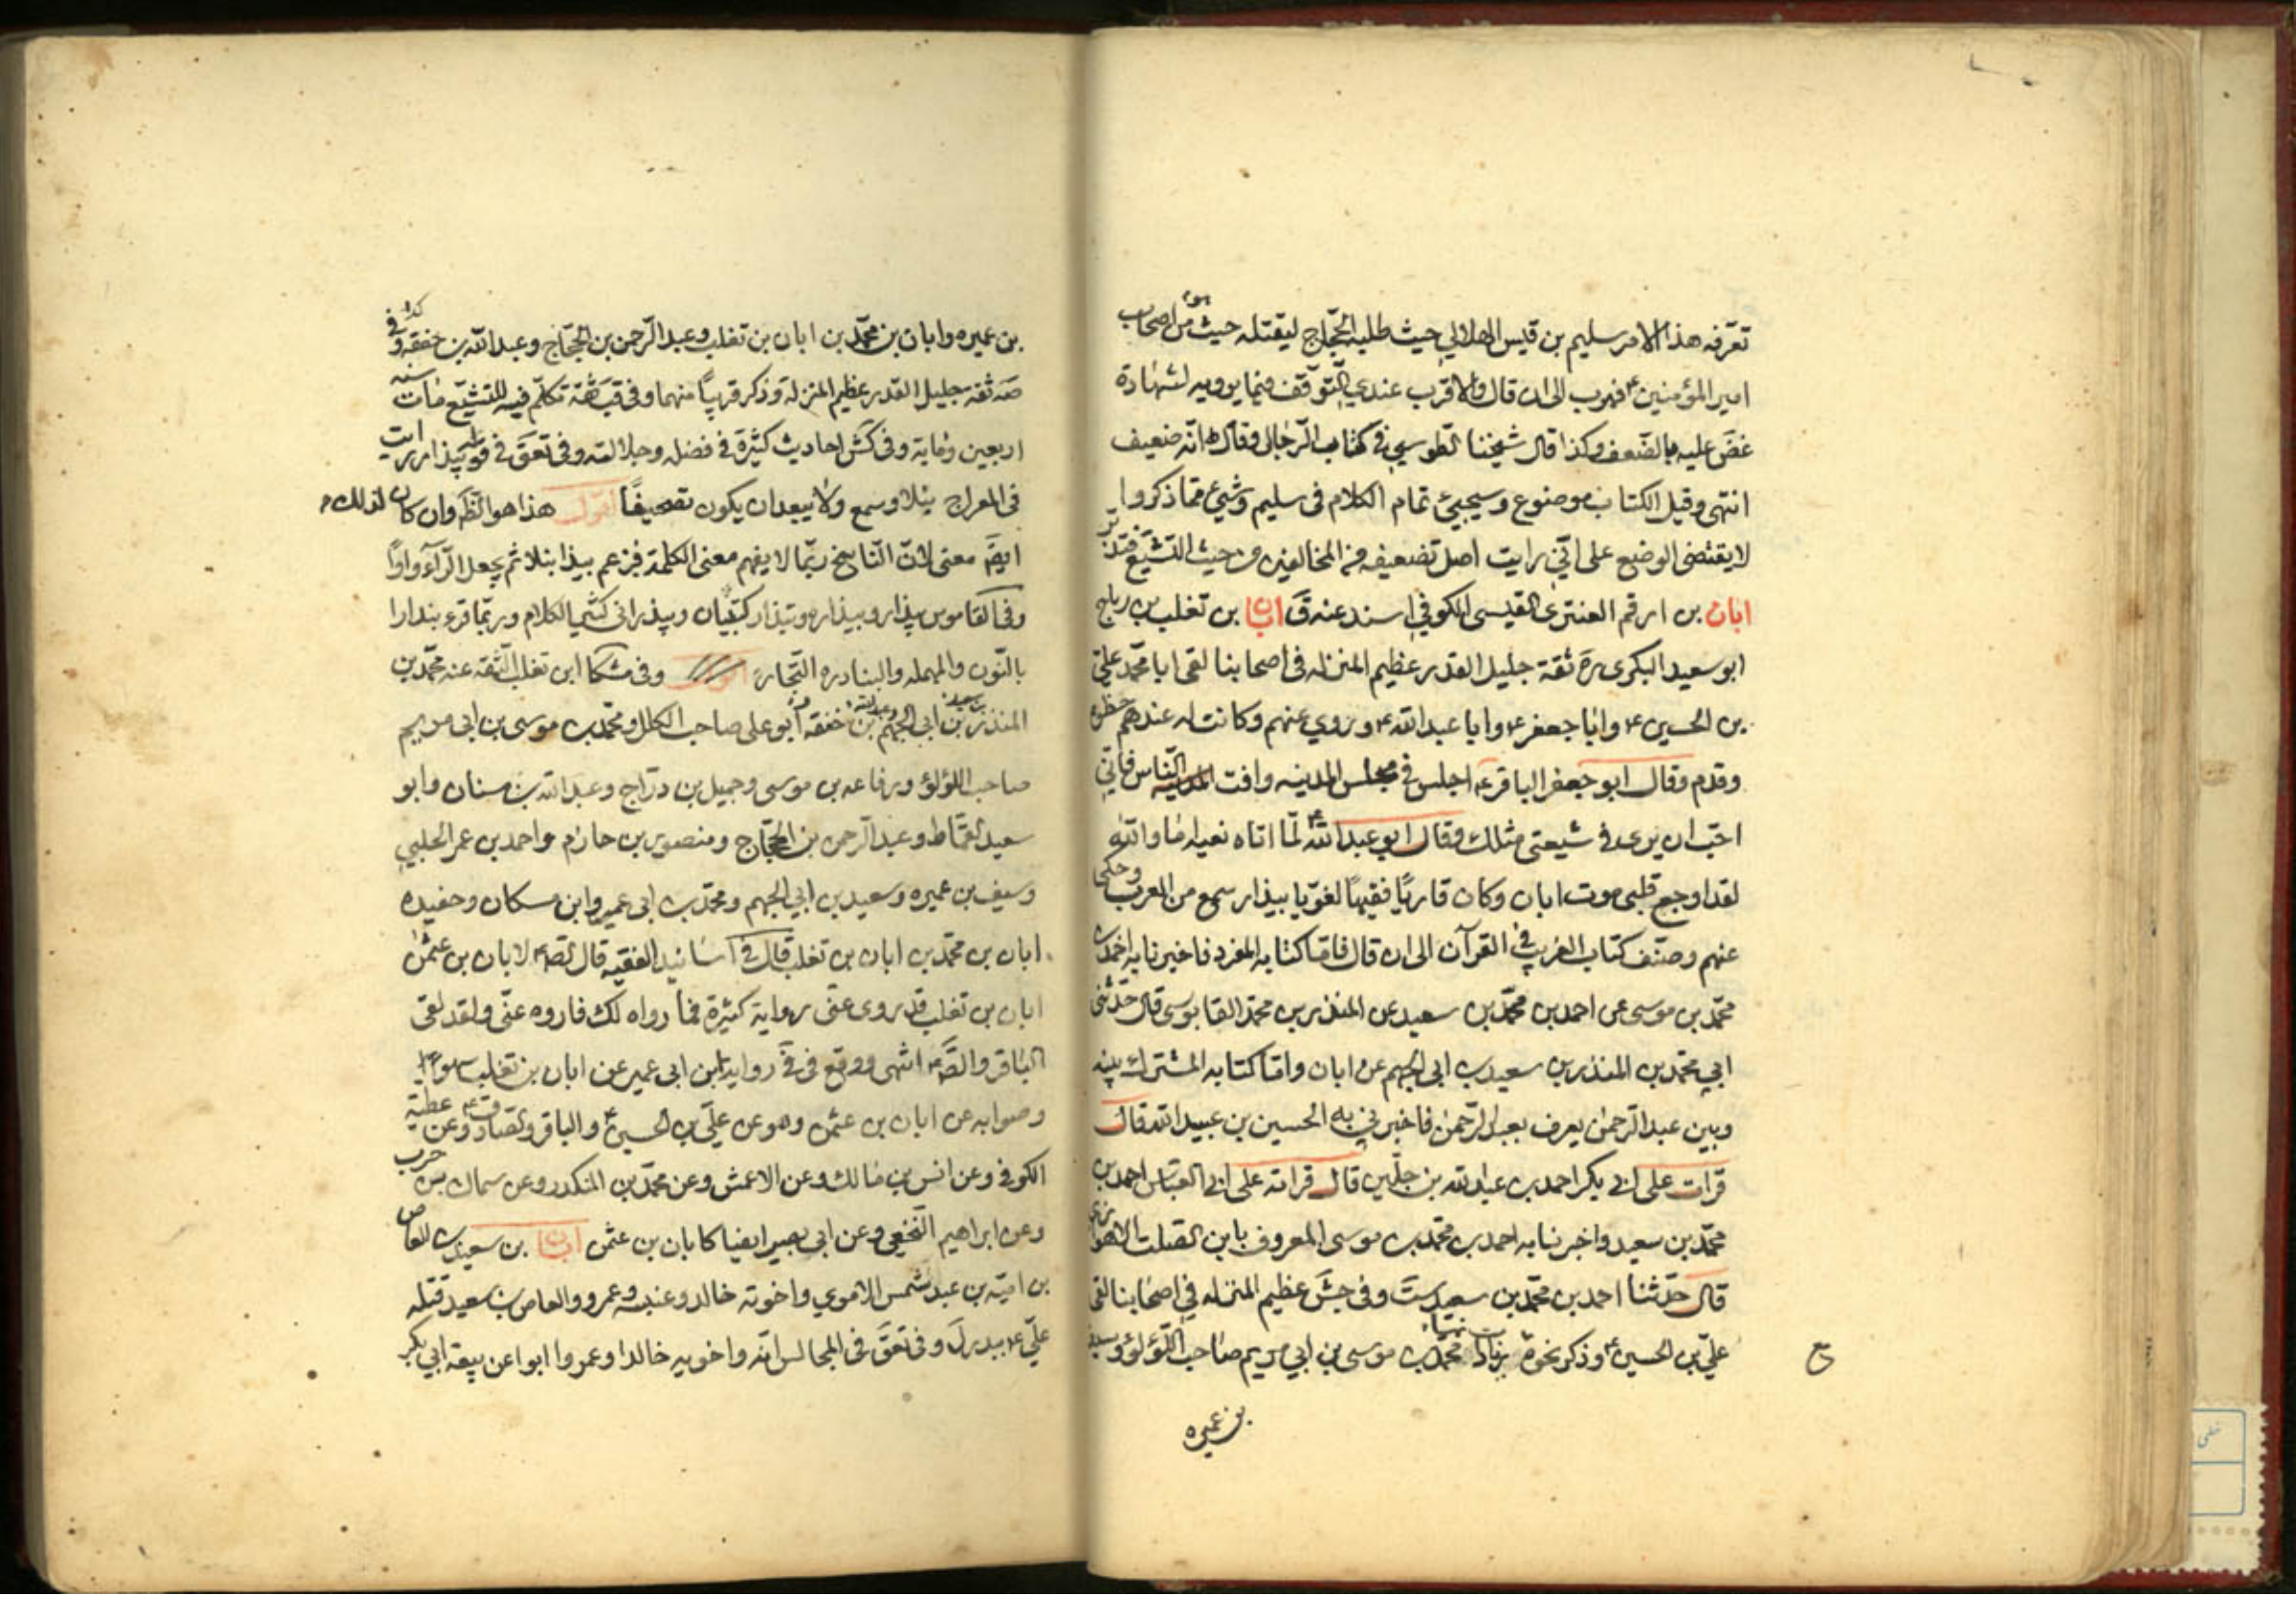 تعرفه هذا الامر سليم بن قيس الهلالي حيث طلبه الحجّاج ليقتله حيث هو من اصحاب
امير المؤمنين ع فهرب الى ان قال والاقرب عندي التوقف فيما يرويه لشهادة
غض عليه بالضعف وكذا قال شيخنا الطوسي في كتاب الرجال وقال انه ضعيف
انتهى وقيل الكتاب موضوع وسيجيئ تمام الكلام في سليم وشيئ مما ذكروا
لا يقتضى الوضع على انّي رايت اصل تضعيفه من المخالفين من حيث التشيّع فتدبّر
ابان بن ارقم العنترى القيسى الكوفي اسند عنه ق ابان بن تغلب بن رباح
ابو سعيد البكرى ره ثقة جليل القدر عظيم المنزله في اصحابنا لقى ابا محمّد علىّ
بن الحسين ع وابا جعفر ع وابا عبد الله ع وروي عنهم وكانت له عندهم خطوه
وقدم وقال ابو جعفر الباقر ع اجلس في مجلس المدينه وافت الناس فانّي
احبّ ان يرى في شيعتى مثلك وقال ابو عبد الله ع لمّا اتاه نعيه اما والله
لقد اوجع قلبى موت ابان وكان قاريًا فقيهًا لغويا بيذار سمع من العرب وحكى
عنهم وصنّف كتاب الغريب في القرآن الى ان قال فامّا كتابه المفرد فاخبرنا به احمد بن
محمّد بن موسى عن احمد بن محمّد بن سعيد عن المنذر بن محمّد القابوسى قال حدّثنى
ابي محمّد بن المنذر بن سعيد بن ابي الجهم عن ابان وامّا كتابه المشترك بينه
وبين عبد الرّحمن يعرف بعبد الرّحمن فاخبرني به الحسين بن عبيد الله قال
قرات على ابي بكر احمد بن عبد الله بن جلّين قال قراته على ابي العبّاس احمد بن
محمّد بن سعيد واخبرنا به احمد بن محمّد بن موسى المعروف بابن الصلت الاهوازى
قال حدّثنا احمد بن محمّد بن سعيد ست وفى جش عظيم المنزله في اصحابنا لقى
علىّ بن الحسين ع وذكر نحوه بزيادة محمّد بن موسى بن ابي مريم صاحب اللؤلؤ وسيف
بن عميره
بن عميره وابان بن محمّد بن ابان بن تغلب وعبد الرّحمن بن الحجّاج وعبد الله بن خفقه وفى
صه ثقة جليل القدر عظيم المنزلة وذكر قريبًا منهما وفى قب ثقة تكلّم فيه للتشيّع مات سنة
اربعين ومائة وفى كش احاديث كثيرة في فضله وجلالته وفى تعق في قوله بيذار رايت
فى المعراج بنلا وسمع ولا يبعد ان يكون تصحيفًا اقول هذا هو الظ وان كان لذلك
ايضًا معنى لانّ النّاسخ ربّما لا يفهم معنى الكلمة فزعم بيذا بنلا ثم جعل الرّآء واوًا
وفى القاموس بيذار وبيذاره وتبذار كتبيان وبيذرانى كثير الكلام وربّما قرء بندارا
بالنّون والمهمله والبنادره التّجار اقول وفى مشكا ابن تغلب الثّقه عنه محمّد بن
المنذر بن سعيد بن ابي الجهم وعبد الله بن خفقه ابو على صاحب الكلل ومحمّد بن موسى بن ابى مريم
صاحب اللؤلؤ ورفاعه بن موسى وجميل بن درّاج وعبد الله بن سنان وابو
سعيد القمّاط وعبد الرّحمن بن الحجّاج ومنصور بن حازم واحمد بن عمر الحلبي
وسيف بن عميره وسعيد بن ابي الجهم ومحمّد بن ابى عمير وابن مسكان وحفيده
ابان بن محمّد بن ابان بن تغلب قال في اسانيد الفقيه قال الص ع لابان بن عثمن
ابان بن تغلب قد روى عنّى رواية كثيرة فما رواه لك فاروه عنّى ولقد لقى
الباقر والص ع انتهى ووقع فى في رواية ابن ابى عمير عن ابان بن تغلب سهوًا
وصوابه عن ابان بن عثمن وهو عن علىّ بن الحسين ع والباقر والصّادق ع وعن عطيّة
الكوفي وعن انس بن مالك وعن الاعمش وعن محمّد بن المنكدر وعن سماك بن حرب
وعن ابراهيم النّخعي وعن ابى بصير ايضا كابان بن عثمن ابان بن سعيد بن العاص
بن اميّة بن عبد شمس الاموي واخوته خالد وعنبسه وعمرو والعاص بن سعيد قتله
علىّ ع ببدر ل وفى تعق فى المجالس انّه واخويه خالدا وعمروا ابوا عن بيعة ابي بكر